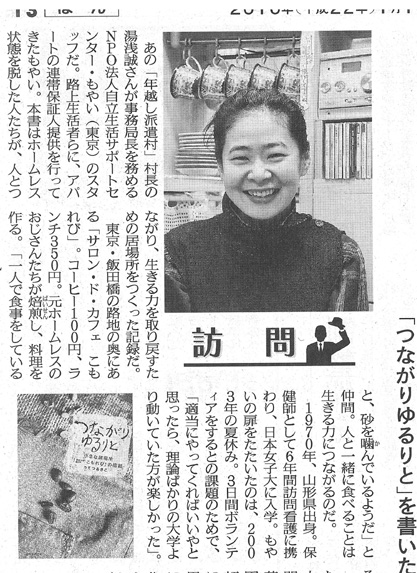 ほん
2010年(平成22年)
「つながりゆるりと」を書いた
訪問
あの「年越し派遣村」村長の
湯浅誠さんが事務局長を務める
NPO法人自立生活サポートセ
ンター・もやい(東京)のスタ
ッフだ。路上生活者らに、アパ
ートの連帯保証人提供を行って
きたもやい。本書はホームレス
状態を脱した人たちが、人とつ
ながり、生きる力を取り戻すた
めの居場所をつくった記録だ。
東京・飯田橋の路地の奥にあ
る「サロン・ド・カフェ こも
れび」。コーヒー100円、ラ
ンチ350円。元ホームレスの
おじさんたちが焙煎し、料理を
作る。「一人で食事をしている
と、砂を噛んでいるようだ」と
仲間。人と一緒に食べることは
生きる力につながるのだ。
1970年、山形県出身。保
健師として6年間訪問看護に携
わり、日本女子大に入学。もや
いの扉をたたいたのは、200
3年の夏休み。3日間ボランテ
ィアをするとの課題のためで、
「適当にやってくればいいやと
思ったら、理論ばかりの大学よ
り動いていた方が楽しかった」。
つながり
ゆるりと